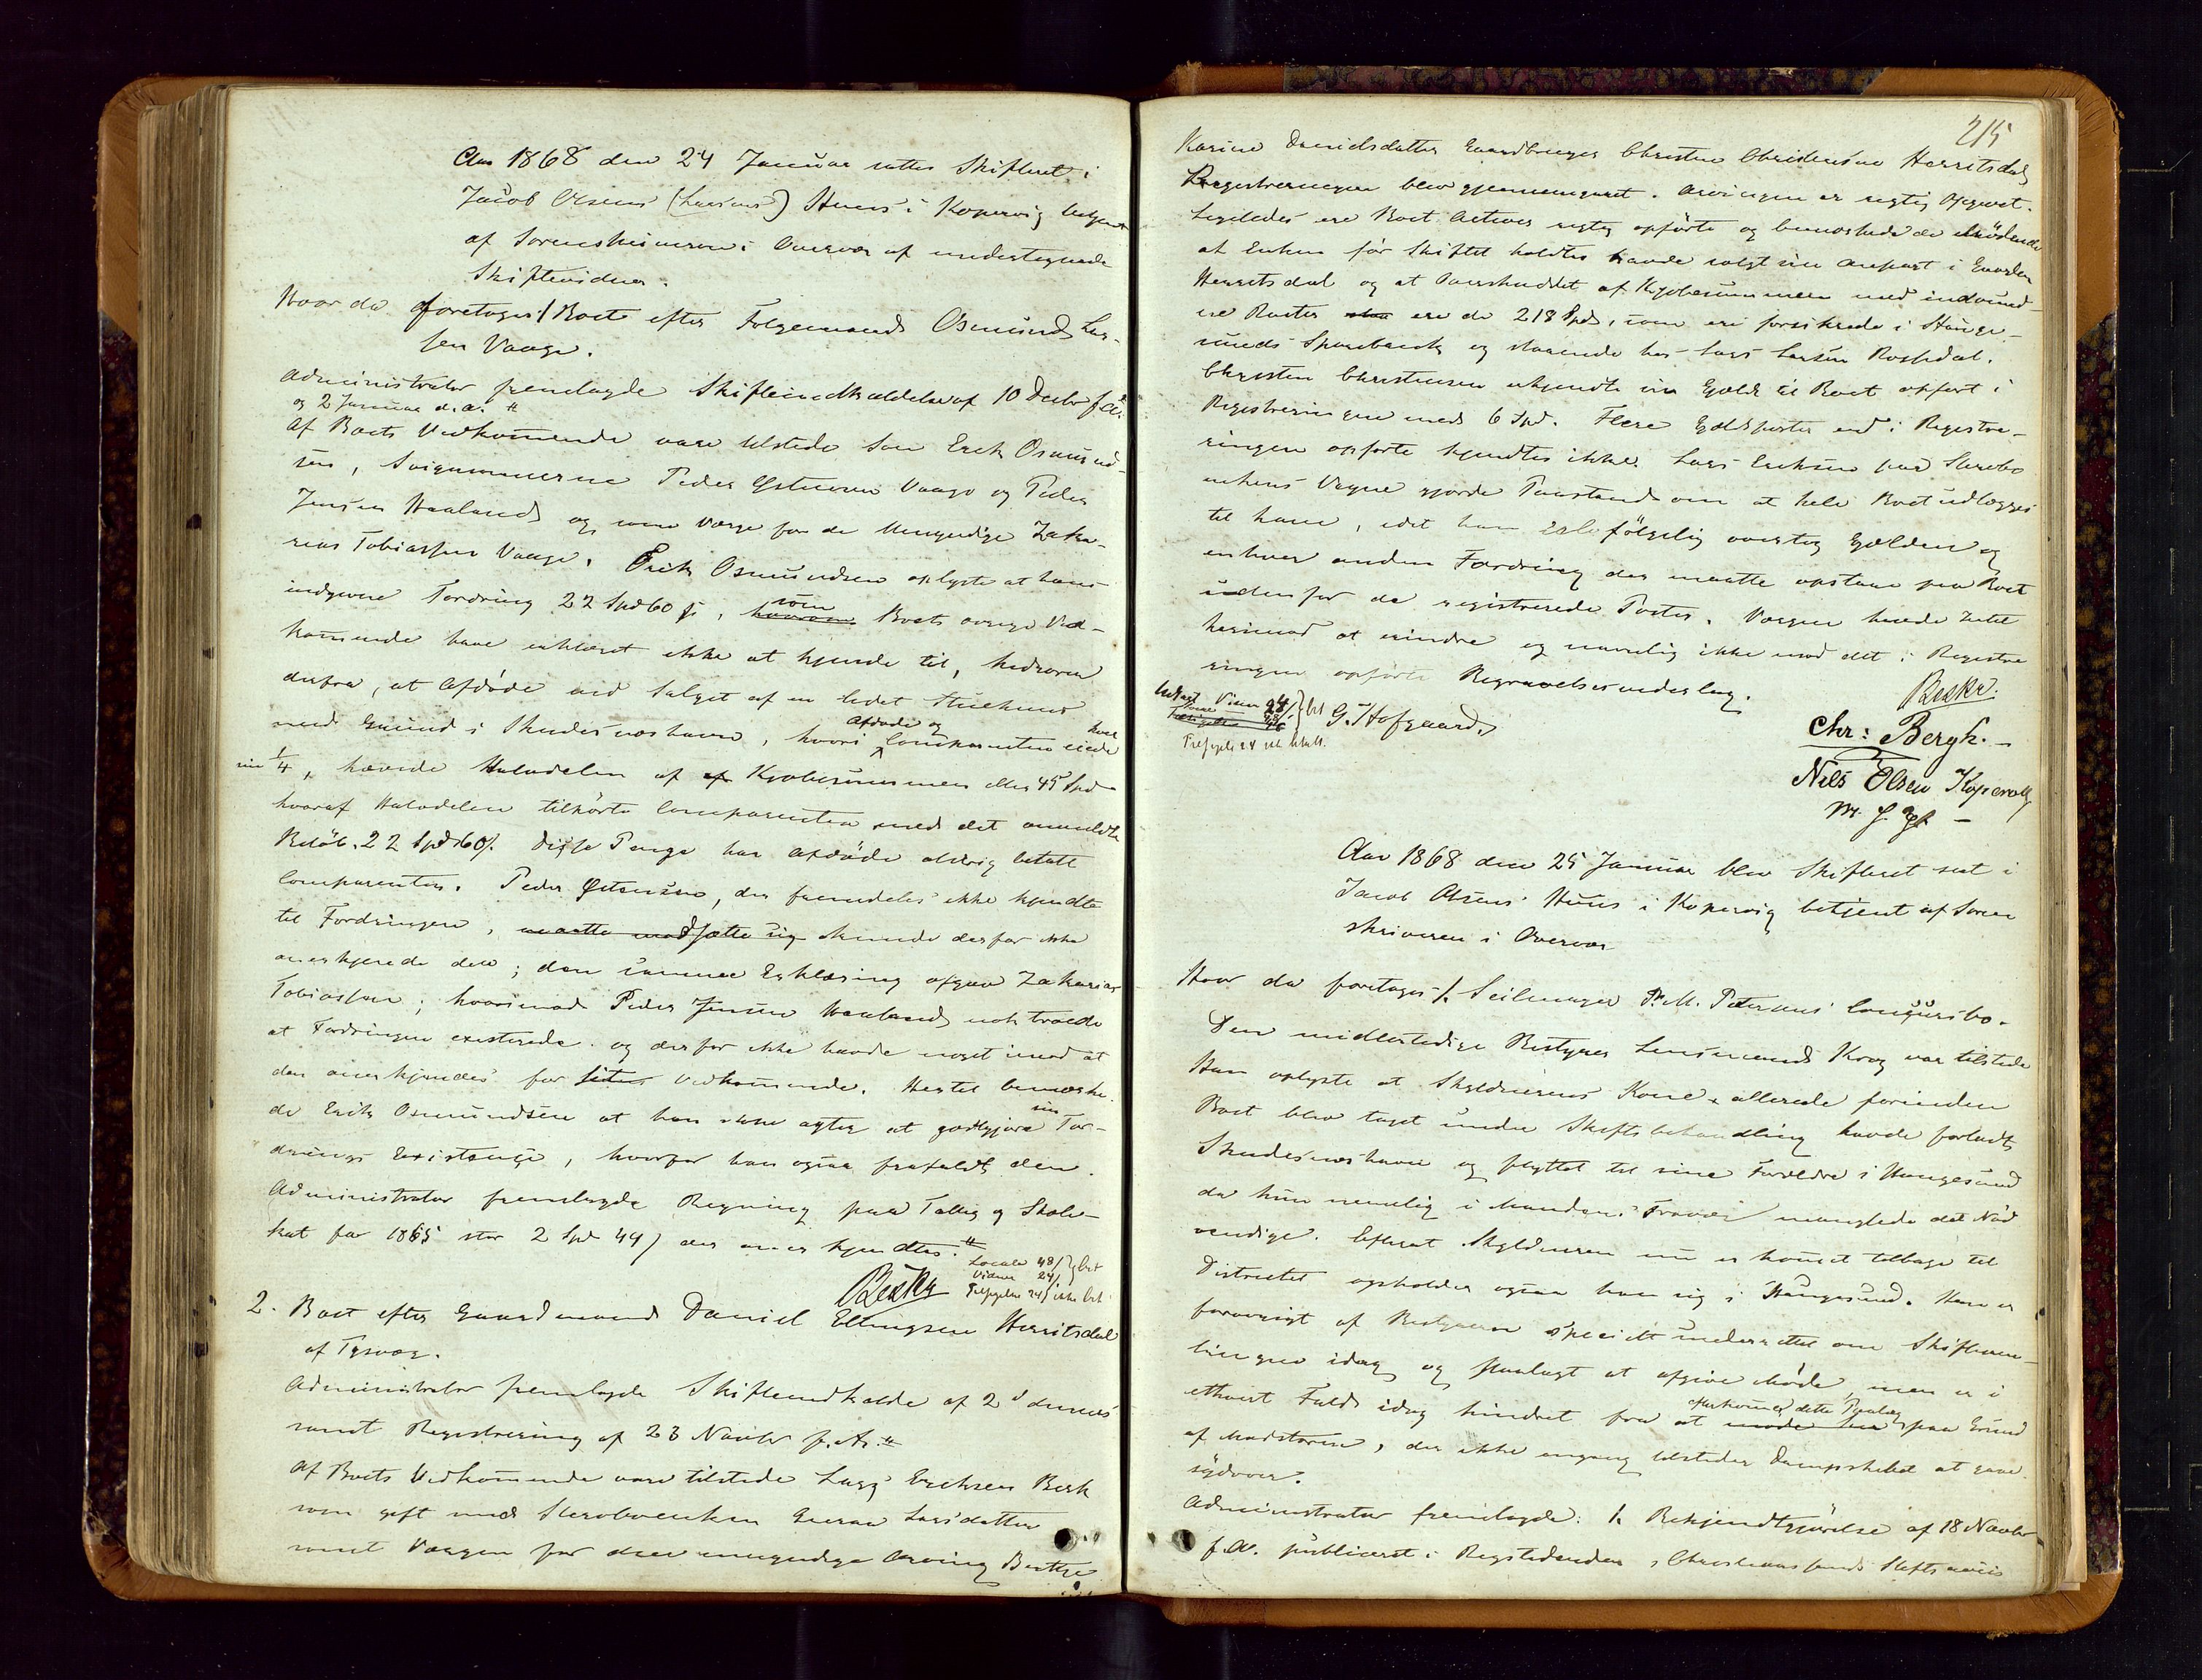 Aar 1868 den 24 Januar sattes Skifteret i
Jacob Olsens (Larsens) Huus i Kopervig betjent
af Sorenskriveren i Overvær af undertegnede
Skiftevidner.
Hvor da foretoges 1/ Boet efter Følgemand Osmund Lar-
sen Vaage.
Administrator fremlagde Skifteindkaldelse af 10 Decbr f. A.
og 2 Januar d. a. #
Af Boets Vedkommende vare tilstede Søn Erik Osmund-
sen, Svigersønnerne Peder Østensen Vaage og Peder
Jensen Haaland og som Værge for de Umyndige Zaka-
rias Tobiassen Vaage. Erik Osmundsen oplyste at hans
indgivne Fordring 22 Spd 60 s, hvorom som Boets øvrige Ved-
kommende have erklæret ikke at kjende til, hidrører
derfra, at Afdøde ved Salget af en liden Huus
med Grund i Skudesnæshavn, hvori Afdøde og Comparenten eiede hver
sin 1/4, hævede Halvdelen af af Kjøbesummen eller 45 Spd
hvoraf Halvdelen tilhørte Comparenten med det anmeldte
Beløb 22 Spd 60 s. Disse Penge har Afdøde aldrig betalt
Comparenten. Peder Østensen, der fremdeles ikke kjendte
til Fordringen, maatte modsætte sig kunde derfor ikke
anerkjende den; den samme Erklæring afgav Zakarias
Tobiassen; hvorimod Peder Jensen Haaland nok troede
at Fordringen existerede og derfor ikke havde noget imod at
den anerkjendes for sit Vedkommende. Hertil bemærke-
de Erik Osmundsen at han ikke agter at godtgjøre sin For-
drings Existense, hvorfor han ogsaa frafaldt den.
Administrator fremlagde Regning paa Fattig og Skole-
skat for 1865 stor 2 Spd 44 s der anerkjendtes. #
Locale 48 s } bet
Vidner 24 s
Beskr
2. Boet efter Gaardmand Daniel Eltingsen Herritsdal
af Tysvær.
Administrator fremlagde Skifteindkalde af 2d dennes
samt Registrering af 23 Novbr f. A. #
Af Boets Vedkommende vare tilstede Lars Erichsen Berk
som gift med Sterboenken Gurine Larsdatter
samt Værgen for den umyndige Arving Berthe
215
Karine Danielsdatter Gaardbruger Christen Christensen Herritsdal
Registreringen blev gjennemgaaet. Arvingen er rigtig Opgivet.
Ligeledes ere Boets Activer rigtig opførte og bemærkede de Mødende
at Enken før Skiftet holdtes havde solgt sin Anpart i Gaarden
Herritsdal og at Overskuddet af Kjøbesummen med indvund-
ne Renter ere de 218 Spd, som ere forsikrede i Hauge-
sunds Sparebank og staaende hos Lars Larsen Rossedal.
Christen Christensen erkjendte sin Gjæld til Boet opført i
Registreringen med 6 Spd. Flere Gjældsposter end i Registre-
ringen opførte kjendtes ikke. Lars Eriksen paa Sterbo
enkens Vegne gjorde Paastand om at hele Boet udlægges
til ham, idet han selvfølgelig overtog Gjælden og
enhver anden Fordring der maatte opstaae paa Boet
udenfor de registrerede Poster. Værgen havde Intet
herimod at erindre og navnlig ikke mod det i Registre
ringen opførte Begravelsesvederlag.
Vidner 24 s } bet
G. Hofgaard.
Beskr.
Chr: Bergh.
Nils Olsen Kopervig
m. f. P.
Aar 1868 den 25 Januar blev Skifteret sat i
Jacob Olsens Huus i Kopervig betjent af Soren
skriveren i Overvær
Hvor da foretoges 1. Seilmager P. M. Petersens Concursbo.
Den midlertidige Bestyrer Lensmand Krog var tilstede
Han oplyste at Skyldnerens Kone allerede forinden
Boet blev taget under Skiftebehandling havde forladt
Skudesnæshavn og flyttet til sine Forældre i Haugesund
da hun nemlig i Mandens Fravær manglede det Nød
vendige. Efterat Skyldneren nu er kommet tilbage til
Districtet opholder ogsaa han sig i Haugesund. Han er
forøvrigt af Bestyreren specielt underrettet om Skiftesam-
lingen idag og paalagt at afgive Møde, men er i
ethvert Fald idag hindret fra at møde her efterkomme dette Paalæg paa Grund
af Modstorm, der ikke engang tilsteder Dampskibet at gaae
sydover.
Administrator fremlagde: 1. Bekjendtgjørelse af 18 Novbr
f. A. publiceret i Rigstidenden, Christianssands Stiftsavis